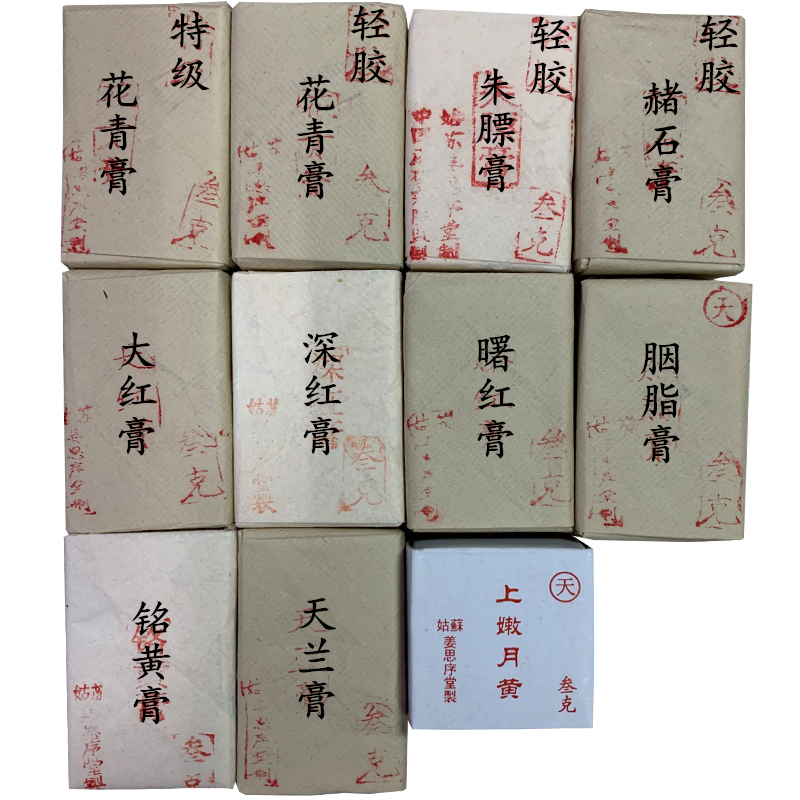 特级
花青膏
叁克
轻胶
花青膏
姑苏
叁克
轻胶
朱膘膏
姑苏
叁克
轻胶
赭石膏
叁克
大红膏
苏
姜思序堂制
叁克
深红膏
姑苏
堂製
叁克
曙红膏
姑
叁克
天
胭脂膏
姑
叁克
铭黄膏
姑苏
思序堂製
叁克
天兰膏
姑
叁克
天
上嫩月黄
姑蘇
姜思序堂製
叁克